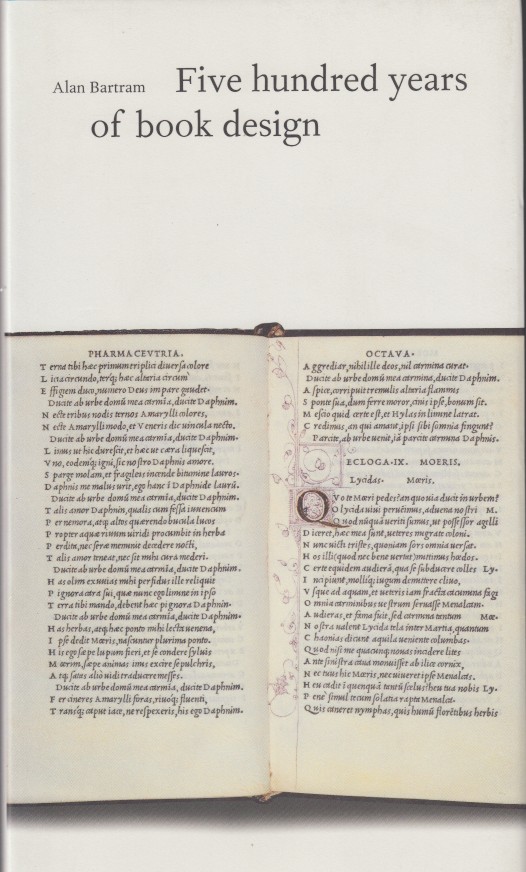 Alan Bartram Five hundred years
of book design
PHARMACEVTRIA.
T erna tibi hæc primum triplici diuersa colore
L icia circundo, terq; hæc altaria circum
E ffigiem duco, numero Deus impare gaudet.
Ducite ab urbe domū mea carmina, ducite Daphnim.
N ecte tribus nodis ternos Amarylli colores,
N ecte Amarylli modo, et Veneris dic uincula necto.
Ducite ab urbe domū mea carmīa, ducite Daphnim.
L imus ut hic durescit, et hæc ut cæra liquescit,
V no, eodemq; igni, sic nostro Daphnis amore.
S parge molam, et fragileis incende bitumine lauros.
D aphnis me malus urit, ego hanc ī Daphnide laurū.
Ducite ab urbe domū mea carmīa, ducite Daphnim.
T alis amor Daphnin, qualis cum fessa iuuencum
P er nemora, atq; altos quærendo bucula lucos
P ropter aquæ riuum uiridi procumbit in herba
P erdita, nec seræ meminit decedere nocti,
T alis amor teneat, nec sit mihi cura mederi.
Ducite ab urbe domū mea carmīa, ducite Daphnim.
H as olim exuuias mihi perfidus ille reliquit
P ignora cara sui, quæ nunc ego limine in ipso
T erra tibi mando, debent hæc pignora Daphnin.
Ducite ab urbe domū mea carmīa, ducite Daphnim.
H as herbas, atq; hæc ponto mihi lecta uenena,
I pse dedit Mœris, nascuntur plurima ponto.
H is ego sæpe lupum fieri, et se condere syluis
M œrim, sæpe animas imis excire sepulchris,
A tq; satas alio uidi traducere messes.
Ducite ab urbe domū mea carmīa, ducite Daphnim.
F er cineres Amarylli foras, riuoq; fluenti,
T ransq; caput iace, ne respexeris, his ego Daphnim.
OCTAVA.
A ggrediar, nihil ille deos, nil carmina curat.
Ducite ab urbe domū mea carmina, ducite Daphnim.
A spice, corripuit tremulis altaria flammis
S ponte sua, dum ferre moror, cinis ipse, bonum sit.
N escio quid certe est, et Hylas in limine latrat.
C redimus, an qui amant, ipsi sibi somnia fingunt?
Parcite, ab urbe uenit, iā parcite carmina Daphnis.
ECLOGA.IX. MOERIS.
Lycidas. Mœris.
Q Vo te Mœri pedes? an quo uia ducit in urbem?
O Lycida uiui peruenimus, aduena nostri M.
Q uod nūquā ueriti sumus, ut possessor agelli
D iceret, hæc mea sunt, ueteres migrate coloni.
N unc uicti tristes, quoniam sors omnia uersat.
H os illi (quod nec bene uertat) mittimus hœdos.
C erte equidem audierā, qua se subducere colles Ly.
I ncipiunt, molliq; iugum demittere cliuo,
V sque ad aquam, et ueteris iam fracta cacumina fagi
O mnia carminibus uestrum seruasse Menalcan.
A udieras, et fama fuit, sed carmina tantum Mœ.
N ostra ualent Lycida tela inter Martia, quantum
C haonias dicunt aquila ueniente columbas.
Q uod nisi me quacunq; nouas incidere lites
A nte sinistra caua monuisset ab ilice cornix,
N ec tuus hic Mœris, nec uiueret ipse Menalcas.
H eu cadit ī quenquā tantū scelus? heu tua nobis Ly.
P ene simul tecum solatia rapta Menalca.
Q uis caneret nymphas, quis humū florētibus herbis